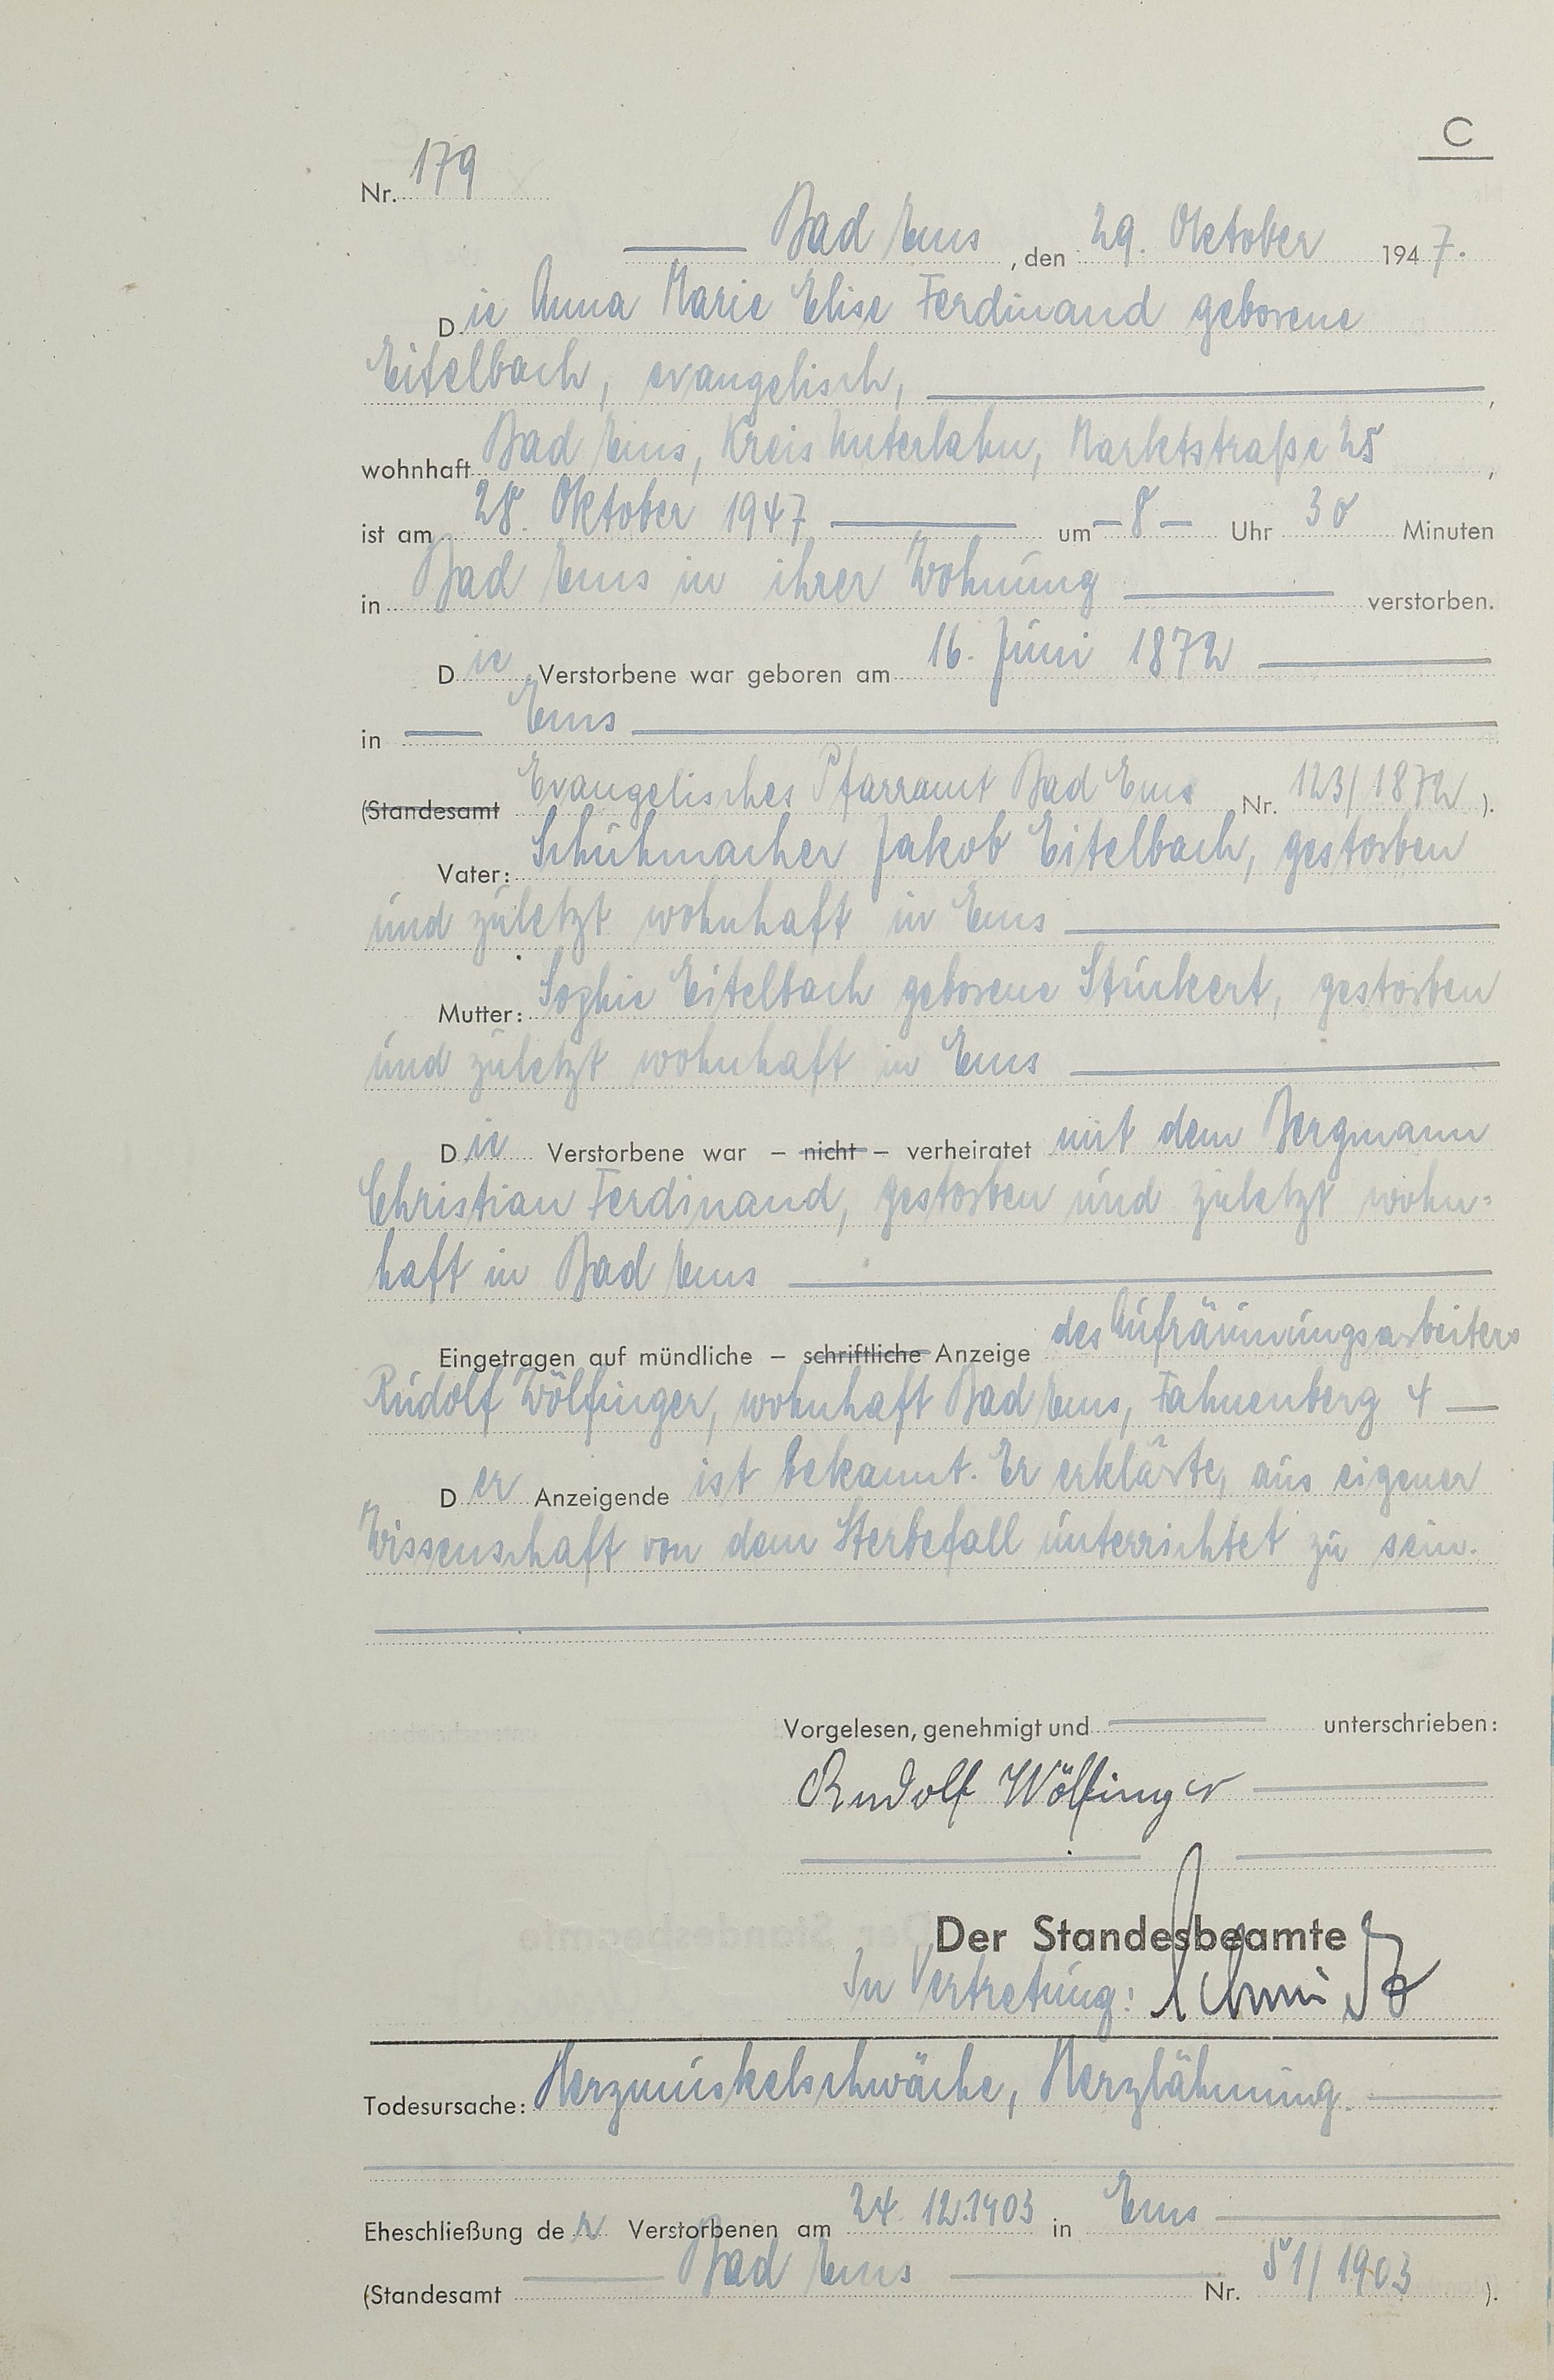 C
Nr. 179
Bad Ems, den 29. Oktober 1947.
Die Anna Marie Elise Ferdinand geborene
Eitelbach, evangelisch, ,
wohnhaft Bad Ems, Kreis Unterlahn, Marktstraße 25 ,
ist am 28. Oktober 1947 um – 8 – Uhr 30 Minuten
in Bad Ems in ihrer Wohnung verstorben.
Die Verstorbene war geboren am 16. Juni 1872
in Ems
(Standesamt Evangelisches Pfarramt Bad Ems Nr. 123/1872 ).
Vater: Schuhmacher Jakob Eitelbach, gestorben
und zuletzt wohnhaft in Ems
Mutter: Sophie Eitelbach geborene Stückert, gestorben
und zuletzt wohnhaft in Ems
Die Verstorbene war – nicht – verheiratet mit dem Bergmann
Christian Ferdinand, gestorben und zuletzt wohn=
haft in Bad Ems
Eingetragen auf mündliche – schriftliche Anzeige des Aufräumungsarbeiters
Rudolf Wölfinger, wohnhaft Bad Ems, Fahnenberg 4
Der Anzeigende ist bekannt. Er erklärte, aus eigener
Wissenschaft von dem Sterbefall unterrichtet zu sein.
Vorgelesen, genehmigt und unterschrieben:
Rudolf Wölfinger
Der Standesbeamte
In Vertretung: Schmidt
Todesursache: Herzmuskelschwäche, Herzlähmung.
Eheschließung der Verstorbenen am 24. 12. 1903 in Ems
(Standesamt Bad Ems Nr. 51/1903 ).